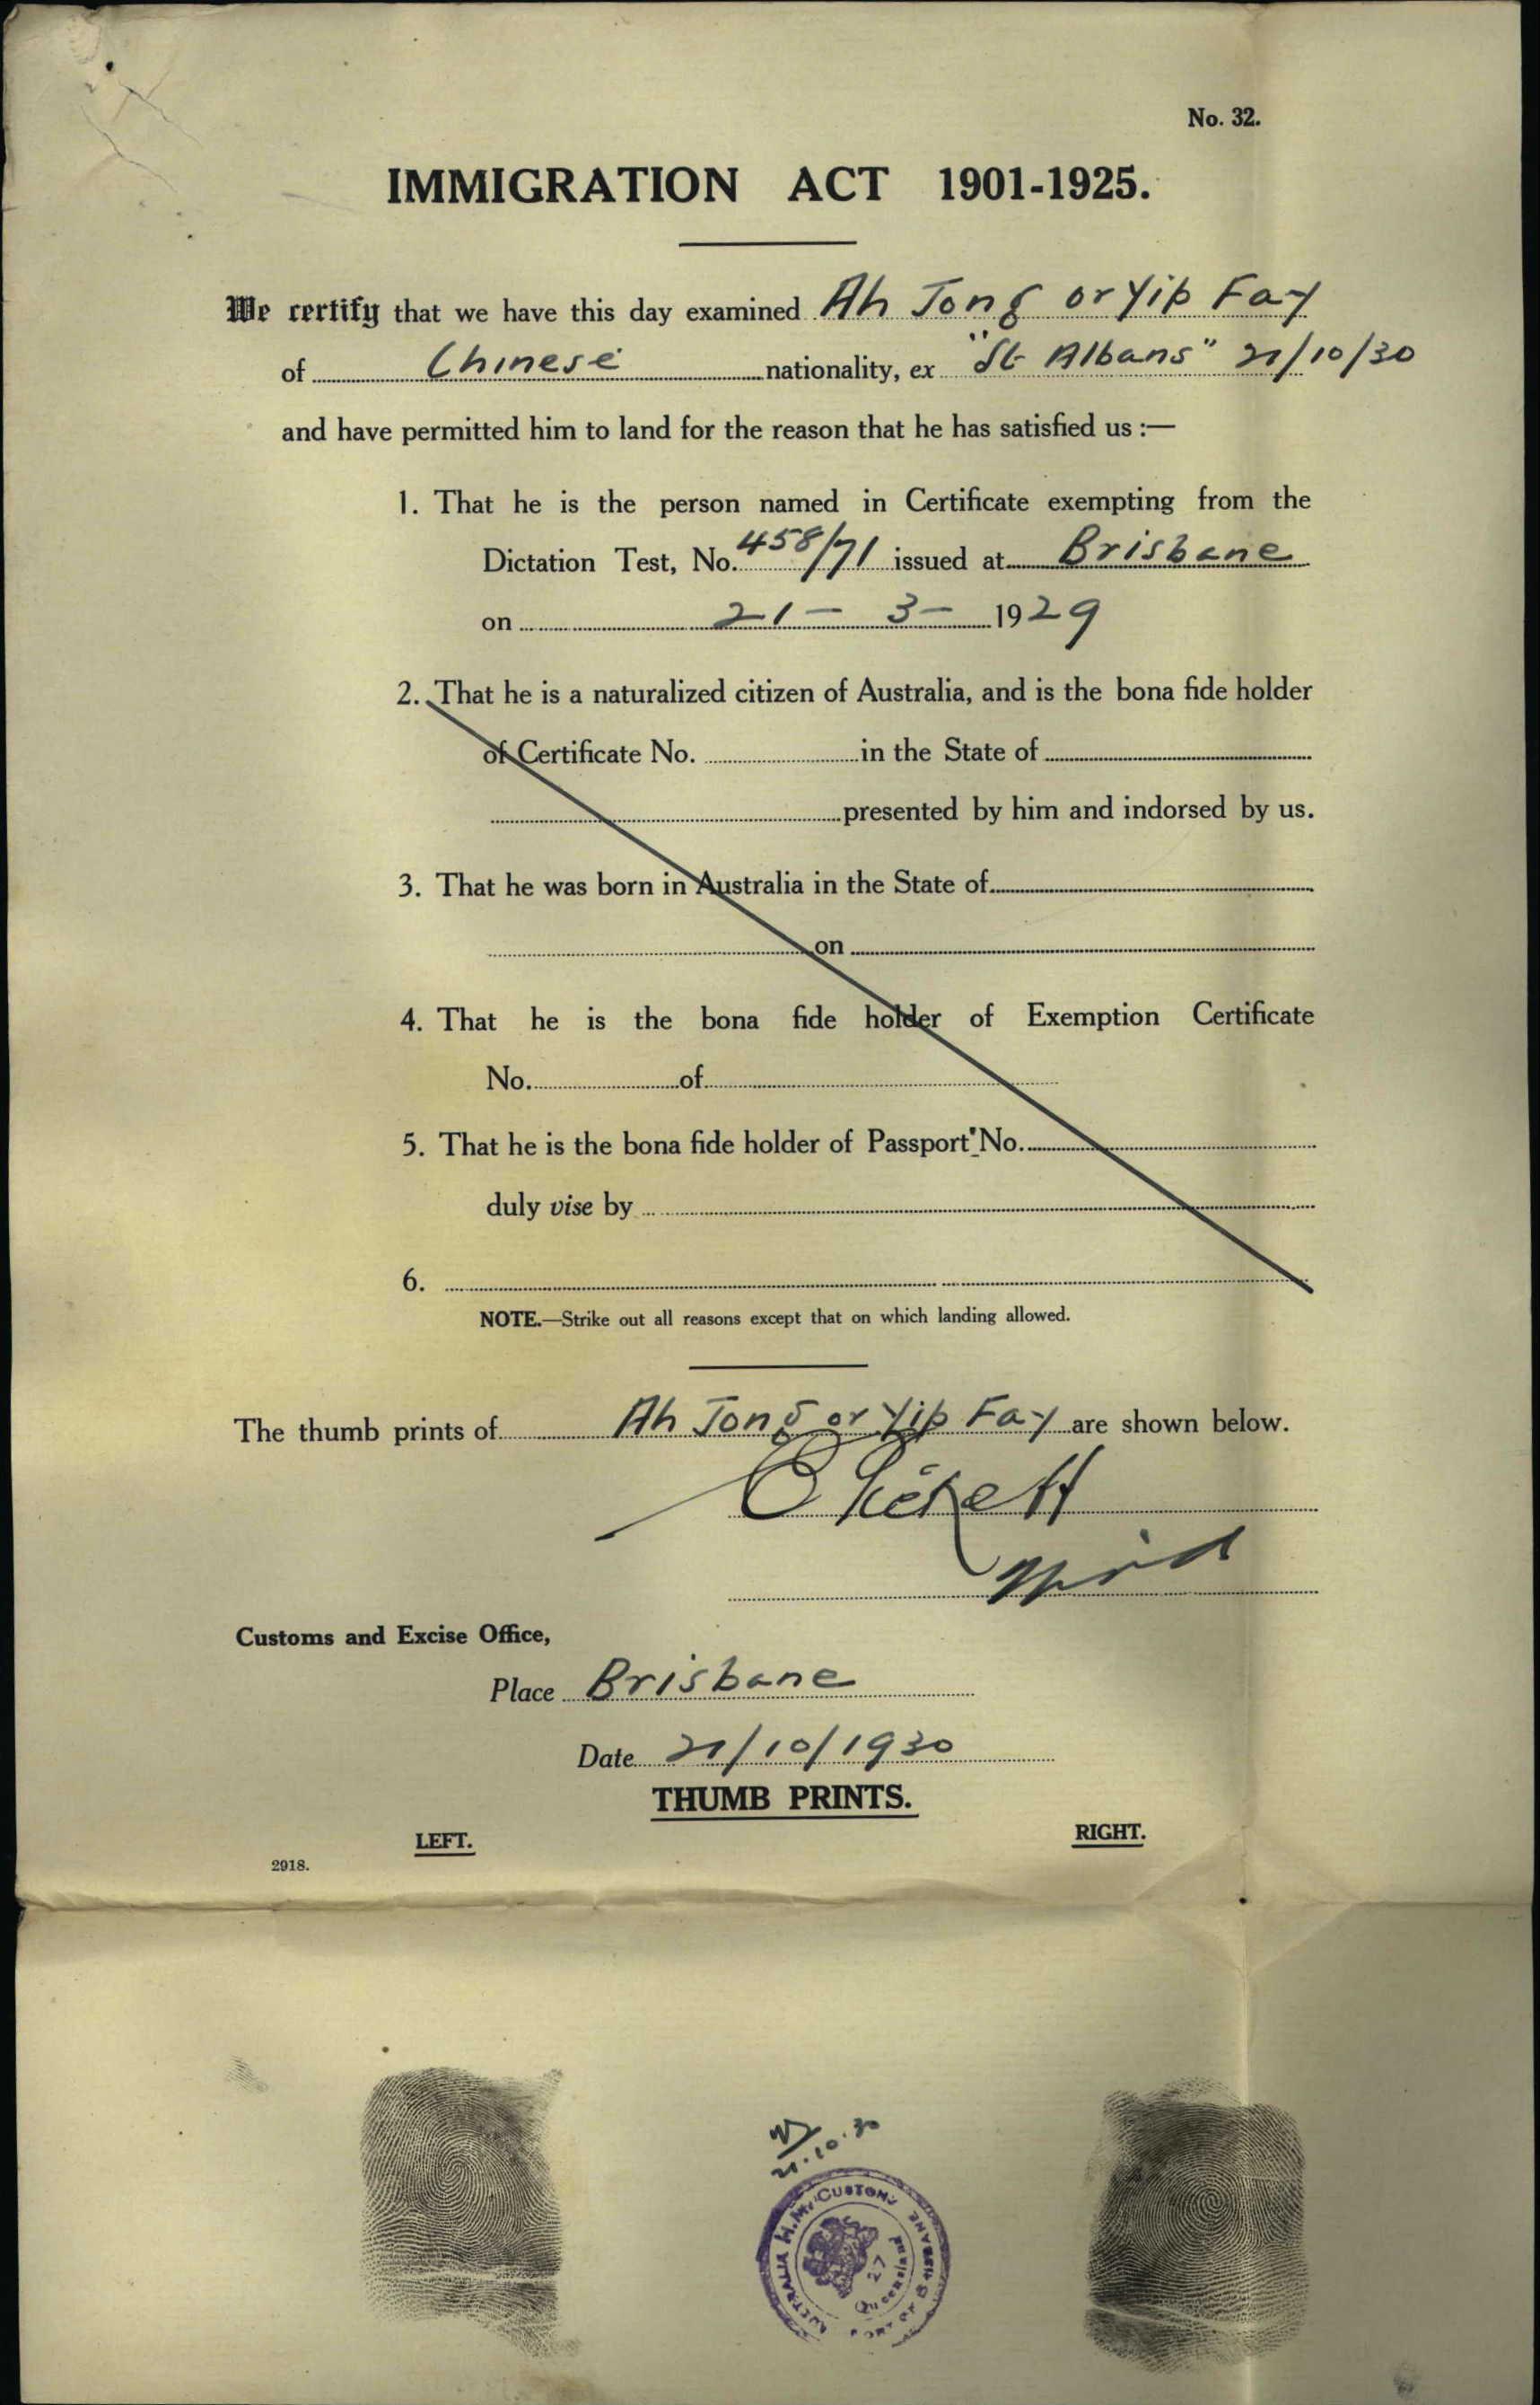 No. 32.
IMMIGRATION ACT 1901-1925.
We certify that we have this day examined Ah Tong or Yip Fay
of Chinese nationality, ex "St Albans" 21/10/30
and have permitted him to land for the reason that he has satisfied us :—
1. That he is the person named in Certificate exempting from the
Dictation Test, No. 458/71 issued at Brisbane
on 21 - 3 - 1929
2. That he is a naturalized citizen of Australia, and is the bona fide holder
of Certificate No. in the State of
presented by him and indorsed by us.
3. That he was born in Australia in the State of
on
4. That he is the bona fide holder of Exemption Certificate
No. of
5. That he is the bona fide holder of Passport No.
duly vise by
6.
NOTE.—Strike out all reasons except that on which landing allowed.
The thumb prints of Ah Tong or Yip Fay are shown below.
Customs and Excise Office,
Place Brisbane
Date 21/10/1930
THUMB PRINTS.
LEFT. RIGHT.
2918.
21.10.30
AUSTRALIA H.M. CUSTOMS
27
Queensland
PORT OF BRISBANE